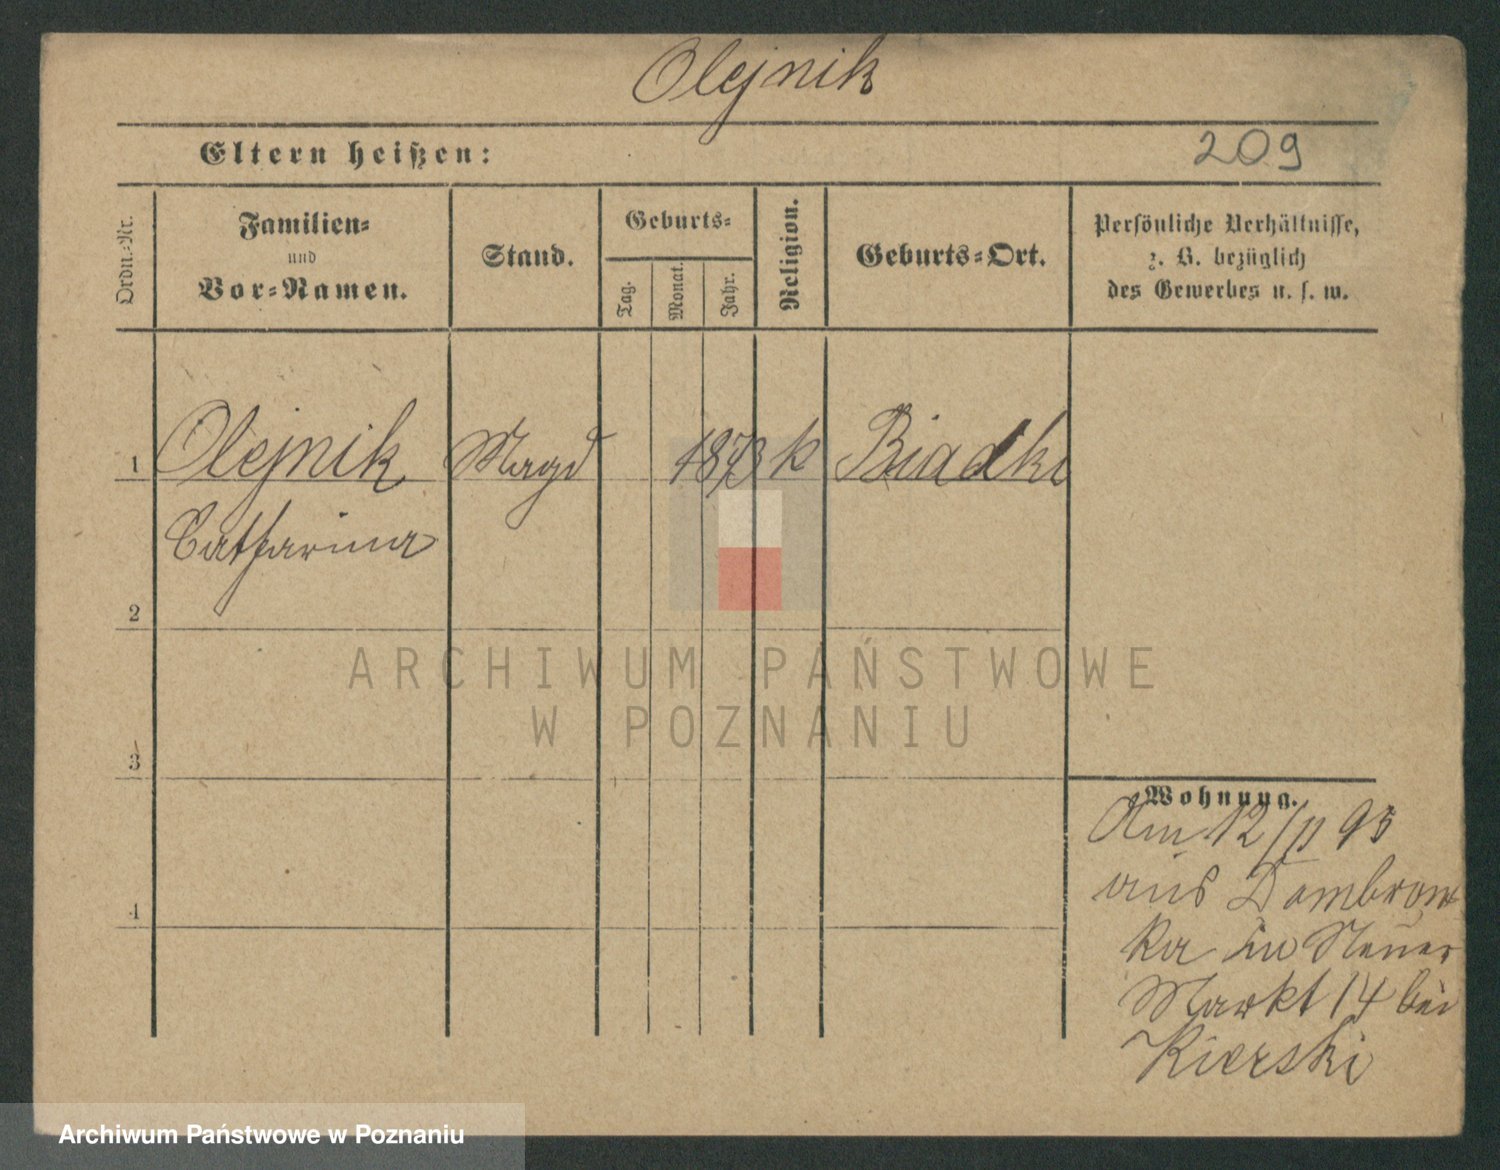 Olejnik
Eltern heißen:
209
Ordn.-Nr.
Familien-
und
Vor-Namen.
Stand.
Geburts-
Tag.
Monat.
Jahr.
Religion.
Geburts-Ort.
Persönliche Verhältnisse,
z. B. bezüglich
des Gewerbes u. s. w.
1
Olejnik Magd 1873 k Biadki
Catharina
2
3
4
Wohnung.
Am 12/11 95
aus Dombrow
ka in Neuer
Markt 14 bei
Kierski
ARCHIWUM PAŃSTWOWE
W POZNANIU
Archiwum Państwowe w Poznaniu